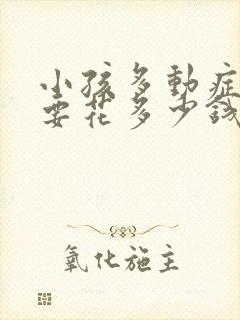 小孩多動症
要花多少錢
氧化施主